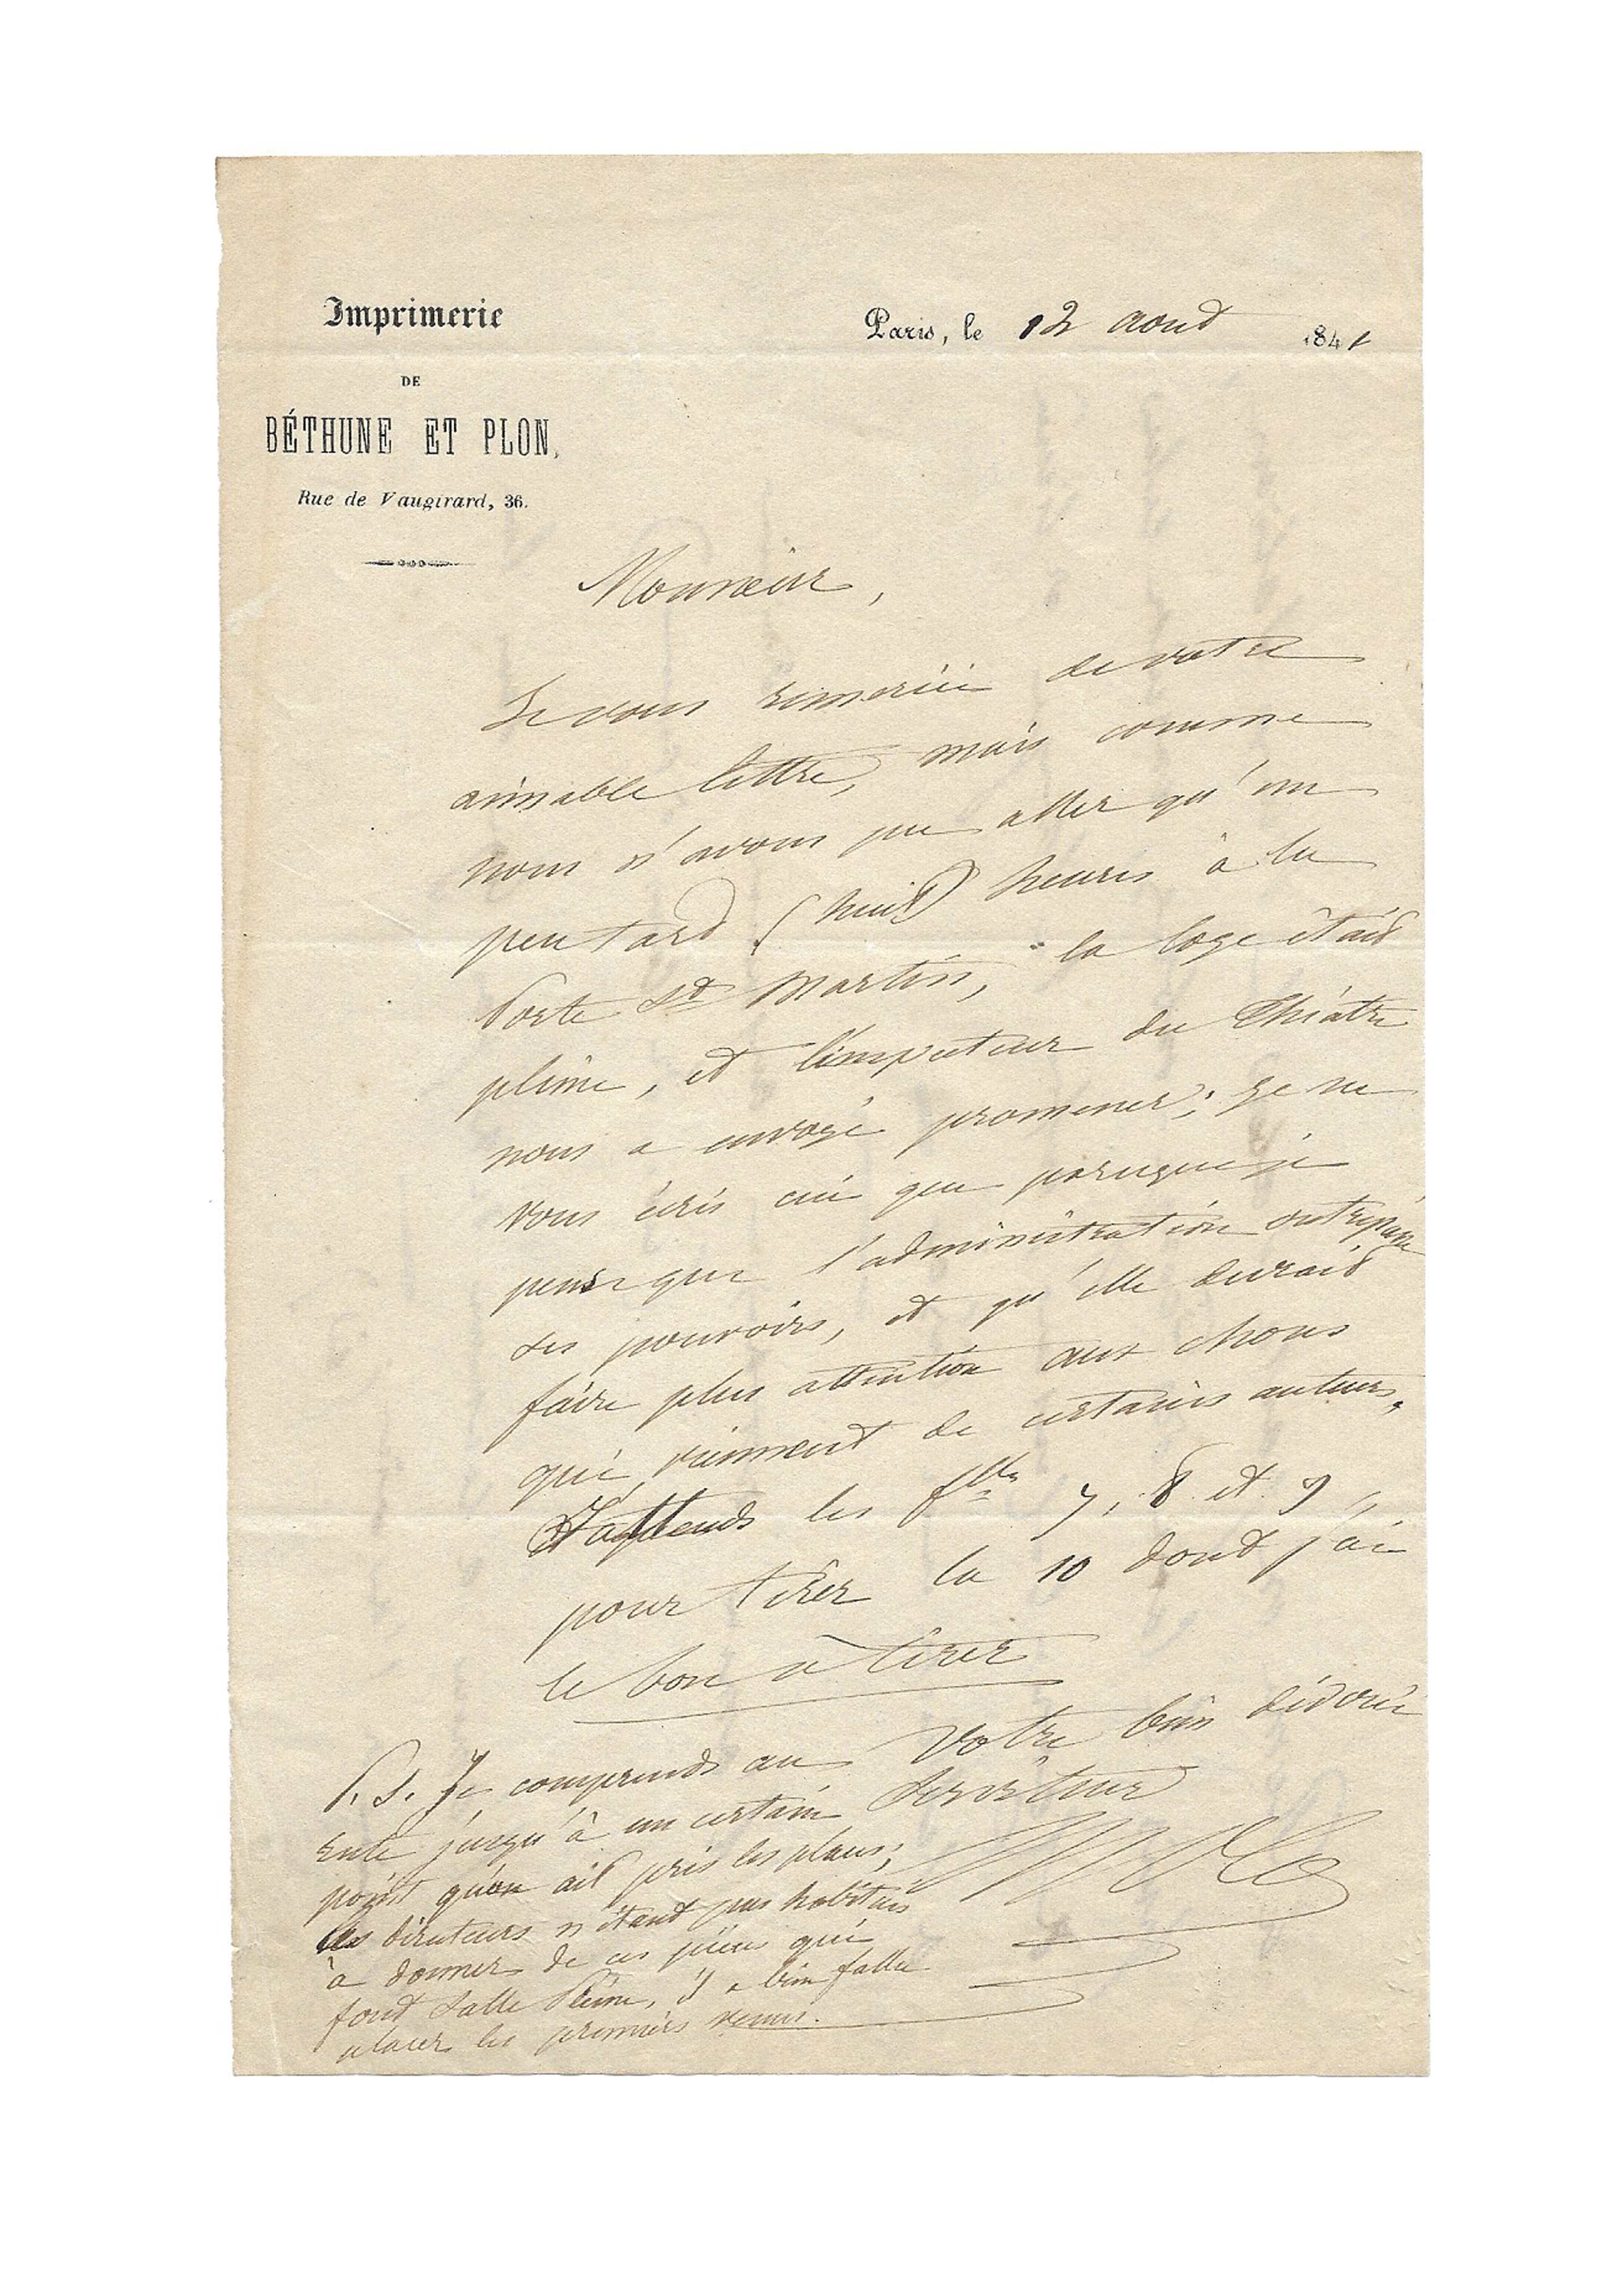 Imprimerie
DE
BÉTHUNE ET PLON,
Rue de Vaugirard, 36.
Paris, le 12 aout 1841
Monsieur,
Je vous remercie de votre
aimable lettre, mais comme
nous n'avons pu aller qu'un
peu tard (huit) heures à la
Porte St Martin, la loge était
pleine, et l'inspecteur du Théâtre
nous a envoyé promener; je ne
vous écris ceci que parceque je
pense que l'administration outrepasse
ses pouvoirs, et qu'elle devrait
faire plus attention aux choses
qui viennent de certains auteurs,
J'attends les flles 7, 8 et 9,
pour tirer la 10 dont j'ai
le bon à tirer
Votre bien dévoué
Serviteur
P.S. Je comprends au
reste jusqu'à un certain
point qu'on ait pris les places;
les directeurs n'étant pas habitués
à donner de ces pièces qui
font Salle Pleine, il a bien fallu
placer les premiers venus.